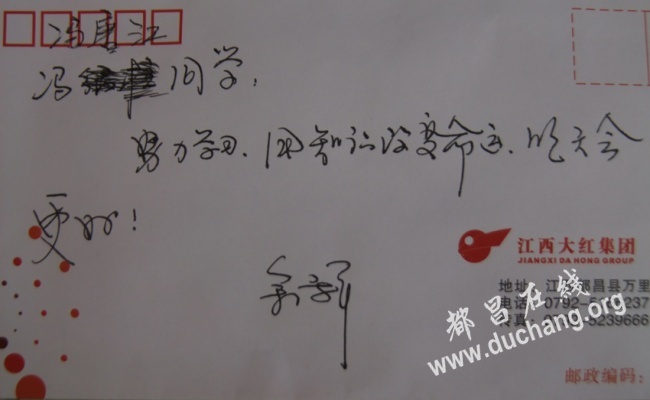 冯唐江
冯 同学:
努力学习、用知识改变命运、明天会
更好!
江西大红集团
JIANGXI DA HONG GROUP
地址: 江 都昌县万里
电话: 0792-5 237
传真: 5239666
都昌在线
www.duchang.org
邮政编码: